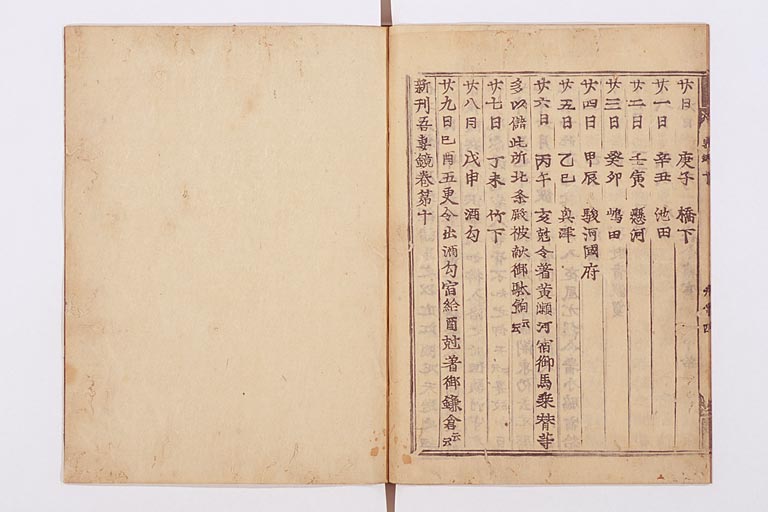 廿日　庚子　橋下
廿一日　辛丑　池田
廿二日　壬寅　懸河
廿三日　癸卯　嶋田
廿四日　甲辰　駿河國府
廿五日　乙巳　奥津
廿六日　丙午　亥尅令著黄瀬河宿御馬乗替等
多以儲此所北条殿被献御駄餉云云
廿七日　丁未　竹下
廿八日　戊申　酒匂
廿九日己酉五更令出酒匂宿給酉尅著御鎌倉云云
新刊吾妻鏡卷第十